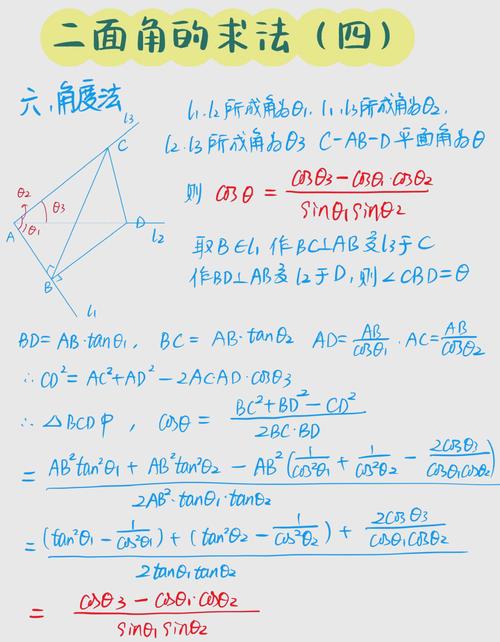 二面角的求法（四）
六、角度法
l₁.l₂所成角为θ₁. l₁.l₃所成角为θ₂.
l₂.l₃所成角为θ₃ C-AB-D平面角为θ
则 cosθ = (cosθ₃-cosθ₁·cosθ₂)/(sinθ₁sinθ₂)
l₃
C
θ₂
θ₃
A
θ₁
D
l₂
B
l₁
取B∈l₁ 作BC⊥AB交l₃于C
作BD⊥AB交l₂于D,则∠CBD=θ
BD=AB·tanθ₁, BC=AB·tanθ₂ AD=AB/cosθ₁.AC=AB/cosθ₂
∴CD²=AC²+AD²-2AC·AD·cosθ₃
∴△BCD中, cosθ=(BC²+BD²-CD²)/(2BC·BD)
=(AB²tan²θ₁+AB²tan²θ₂-AB²(1/cos²θ₁+1/cos²θ₂-2cosθ₃/cosθ₁cosθ₂))/(2AB²·tanθ₁·tanθ₂)
=((tan²θ₁-1/cos²θ₁)+(tan²θ₂-1/cos²θ₂)+2cosθ₃/cosθ₁cosθ₂)/(2tanθ₁tanθ₂)
=(cosθ₃-cosθ₁·cosθ₂)/(sinθ₁sinθ₂)